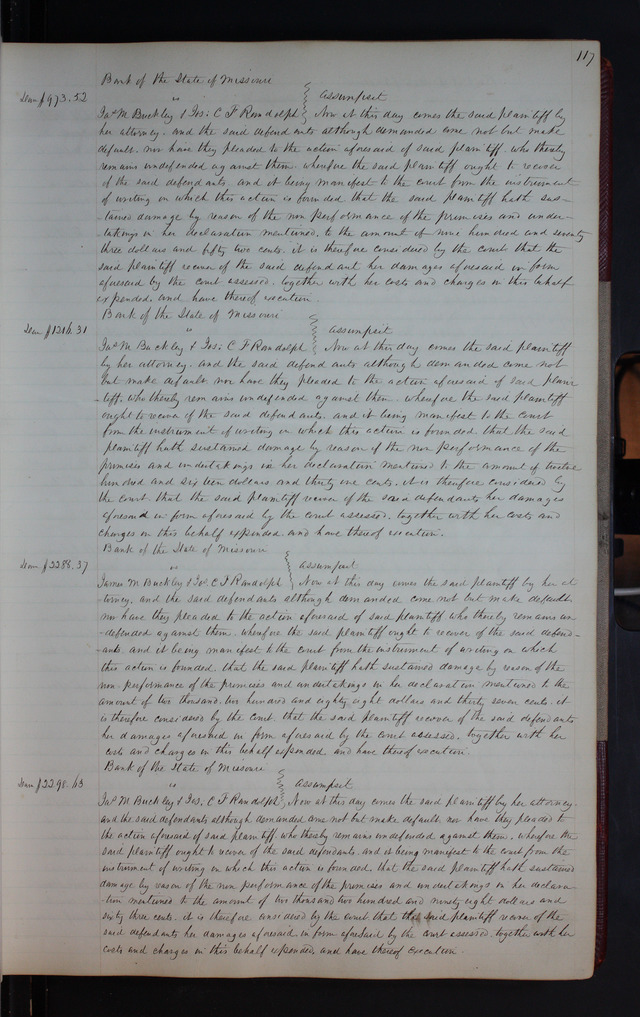 117
Bank of the State of Missouri
Dam $973.52 vs Assumpsit
Jas M Buckley & Jos: C F Randolph Now at this day comes the said plaintiff by
her attorney. and the said defendants although demanded come not but make
default. nor have they pleaded to the action aforesaid of said plaintiff. who thereby
remains undefended against them. wherefore the said plaintiff ought to recover
of the said defendants. and it being manifest to the court from the instrument
of writing on which this action is founded that the said plaintiff hath sus-
-tained damage by reason of the non performance of the premises and under-
-takings in her declaration mentioned. to the amount of nine hundred and seventy
three dollars and fifty two cents. it is therefore considered by the court that the
said plaintiff recover of the said defendant her damages aforesaid in form
aforesaid by the court assessed. together with her costs and charges in this behalf
expended. and have thereof execution.
Bank of the State of Missouri
Dam $1216.31 vs Assumpsit
Jas M. Buckley & Jos; C F Randolph Now at this day comes the said plaintiff
by her attorney. and the said defendants although demanded come not
but make default nor have they pleaded to the action aforesaid of said plain
-tiff. who thereby remains undefended against them. wherefore the said plaintiff
ought to recover of the said defendants. and it being manifest to the court
from the instrument of writing on which this action is founded that the said
plaintiff hath sustained damage by reason of the non performance of the
premises and undertakings in her declaration mentioned to the amount of twelve
hundred and sixteen dollars and thirty one cents. it is therefore considered by
the court that the said plaintiff recover of the said defendants her damages
aforesaid in form aforesaid by the court assessed. together with her costs and
charges in this behalf expended. and have thereof execution.
Bank of the State of Missouri
Dam $2288.37 vs Assumpsit
James M Buckley & Jos. C F Randolph Now at this day comes the said plaintiff by her at
-torney. and the said defendants although demanded come not but make default
nor have they pleaded to the action aforesaid of said plaintiff who thereby remains un
-defended against them. wherefore the said plaintiff ought to recover of the said defend-
-ants. and it being manifest to the court from the instrument of writing on which
this action is founded. that the said plaintiff hath sustained damage by reason of the
non performance of the premises and undertakings in her declaration mentioned to the
amount of two thousand two hundred and eighty eight dollars and thirty seven cents. it
is therefore considered by the court. that the said plaintiff recover of the said defendants
her damages aforesaid in form aforesaid by the court assessed. together with her
costs and charges in this behalf expended and have thereof execution.
Bank of the State of Missouri
Dam $2298.63 vs Assumpsit
Jas M Buckley & Jos. C F Randolph Now at this day comes the said plaintiff by her attorney.
and the said defendants although demanded come not but make default. nor have they pleaded to
the action aforesaid of said plaintiff. who thereby remains undefended against them. wherefore the
said plaintiff ought to recover of the said defendants. and it being manifest to the court from the
instrument of writing on which this action is founded. that the said plaintiff hath sustained
damage by reason of the non performance of the premises and undertakings in her declara
-tion mentioned to the amount of two thousand two hundred and ninety eight dollars and
sixty three cents. it is therefore considered by the court that the said plaintiff recover of the
said defendants her damages aforesaid in form aforesaid by the court assessed. together with her
costs and charges in this behalf expended. and have thereof execution.